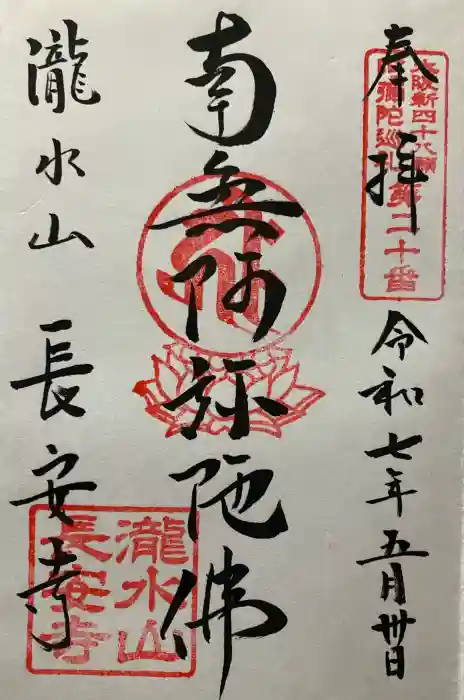 奉拝
大阪新四十八願
阿彌陀巡礼
第二十番
令和七年五月卅日
南無阿弥陀佛
瀧水山 長安寺
瀧水山
長安寺